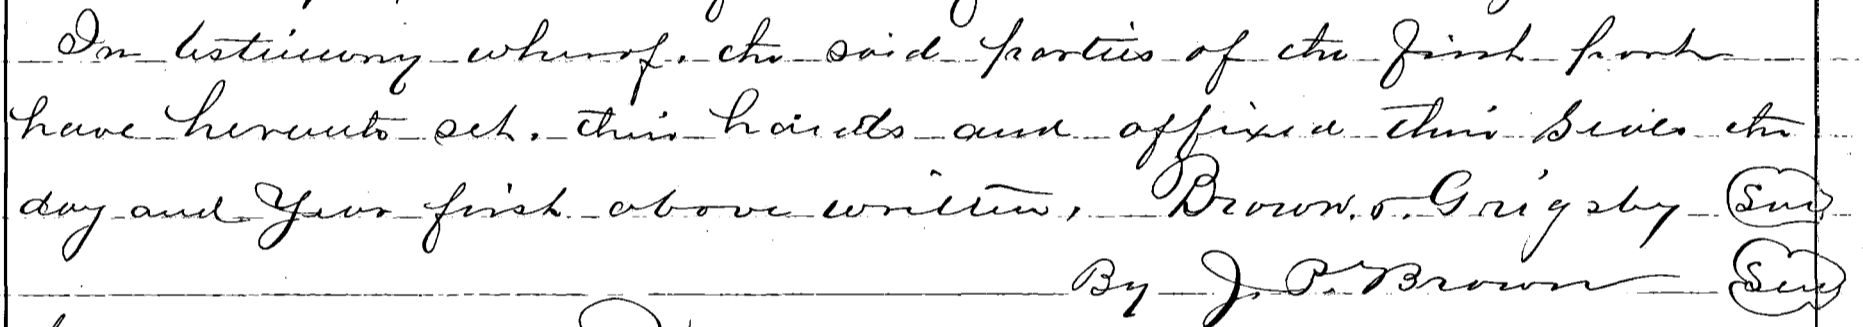 In testimony whereof, the said parties of the first part
have hereunto set, their hands and affixed their Seals the
day and Year first above written, Brown & Grigsby Seal
By J. P. Brown Seal